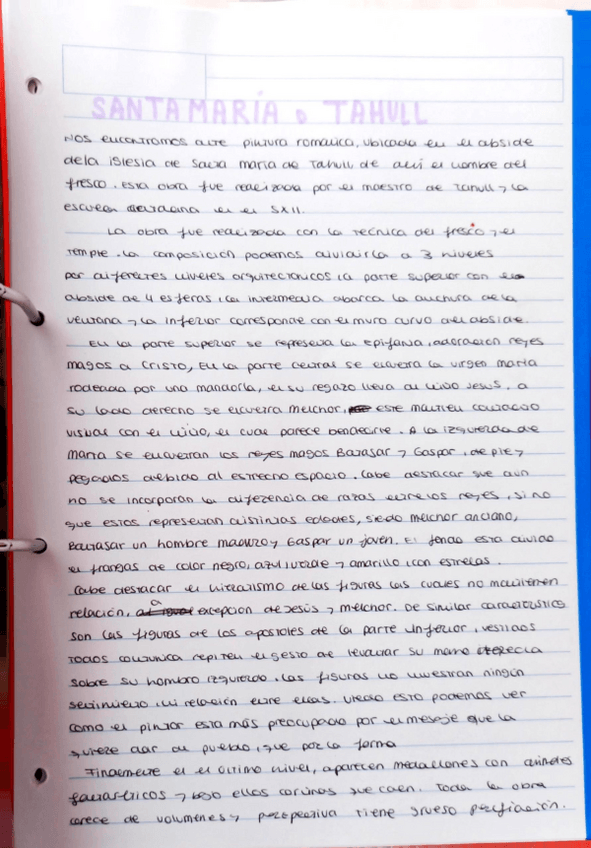 SANTA MARÍA D TAHULL
Nos encontramos ante pintura romanica, ubicada en el abside
dela iglesia de Santa maria de Tahull de ahí el nombre del
fresco. Esta obra fue realizada por el maestro de Tahull y la
escuela en el SXII.
La obra fue realizada con la tecnica del fresco y el
temple. la composición podemos dividirla a 3 niveles
por diferentes niveles arquitectonicos la parte superior con el
abside de 4 esferas, la intermedia abarca la anchura de la
ventana y la inferior corresponde con el muro curvo del abside.
En la parte superior se representa la Epifania, adoración reyes
magos a Cristo, En la parte central se encuentra la virgen maría
rodeada por una mandorla, en su regazo lleva al niño Jesus. a
su lado derecho se encuentra melchor, este mantien contacto
visual con el niño, el cual parece bendecirle. A la izquierda de
maria se encuentran los reyes magos Baltasar y Gaspar, de pie y
pegados debido al estrecho espacio. Cabe destacar que aun
no se incorporan la diferencia de razas entre los reyes, si no
que estos representan distintas edades, siedo melchor anciano,
Baltasar un hombre maduro y Gaspar un joven. El fondo esta divido
en franjas de color negro, azul verde y amarillo con estrellas.
Cabe destacar el hieratismo de las figuras las cuales no mantienen
relación, a excepcion de Jesús y melchor. De similar caracteristicas
son las figuras de los apostoles de la parte inferior, vestidos
todos con tunica repiten el gesto de levantar su mano derecha
sobre su hombro izquierdo. las figuras no muestran ningún
sentimiento, ni relación entre ellas. viendo esto podemos ver
como el pintor esta más preocupado por el mensaje que la
quiere dar al pueblo, que por la forma
Finalmente en el último nivel, aparecen medallones con animales
fantasticos y bajo ellos cortinas que caen. Toda la obra
carece de volumenes y perspectiva tiene grueso perfilación.